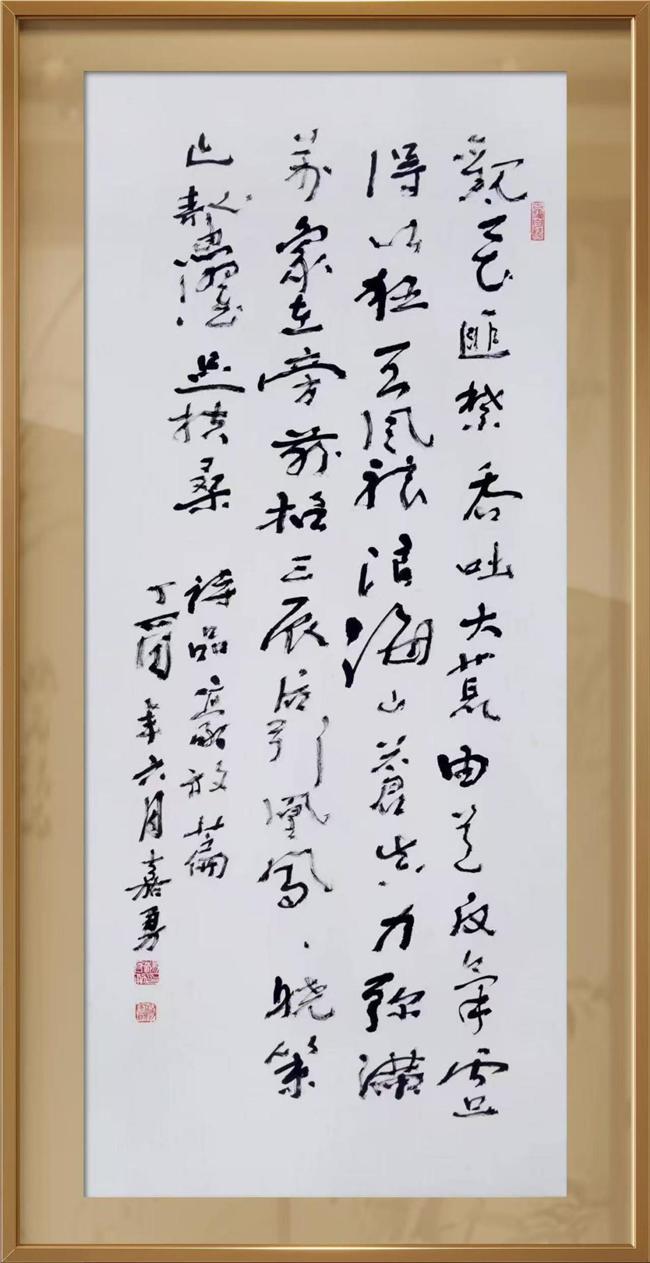 觀花匪禁吞吐大荒由道反氣處
得以狂天風浪浪海山蒼真力彌滿
萬象在旁前招三辰後引凰鳳、曉策
六鰲濯足扶桑 詩品豪放篇
丁酉年六月嘉勇